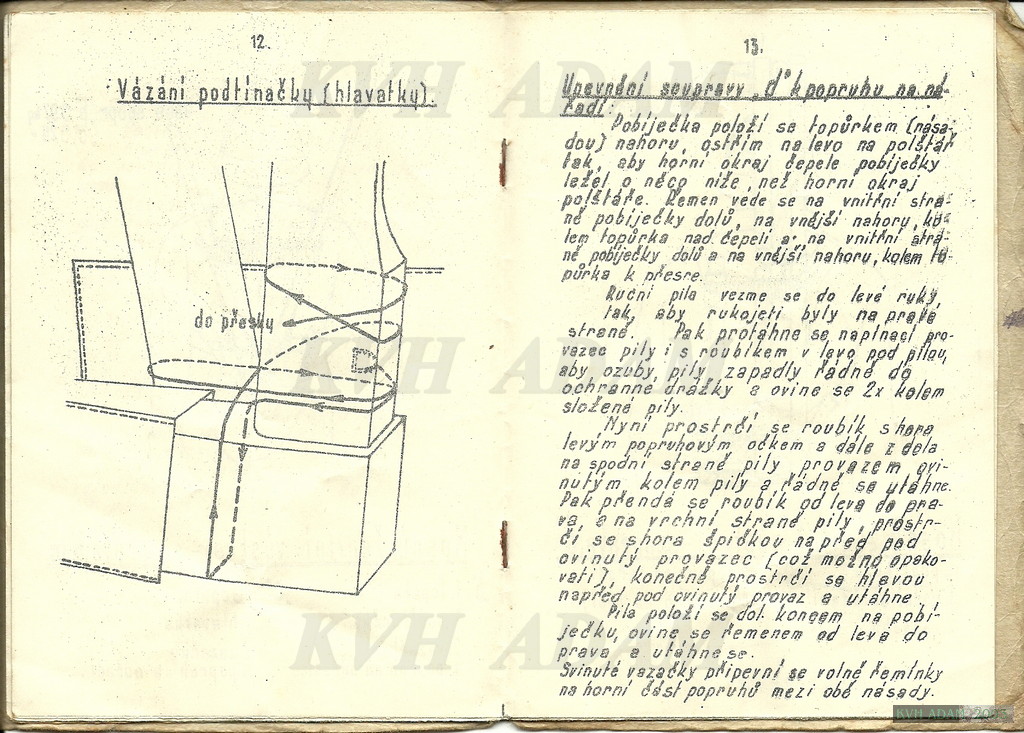 12.
Vázání podtínačky (hlavatky).
do přesky
13.
Upevnění soupravy „ď" k popruhu na ná-
řadí:
Pobíječka položí se topůrkem (nása-
dou) nahoru, ostřím na levo na polštář
tak, aby horní okraj čepele pobíječky
ležel o něco níže, než horní okraj
polštáře. Řemen vede se na vnitřní stra-
ně pobíječky dolů, na vnější nahoru, ko-
lem topůrka nad čepelí a na vnitřní stra-
ně pobíječky dolů a na vnější nahoru, kolem to-
půrka k přesce.
Ruční pila vezme se do levé ruky,
tak, aby rukojeti byly na pravé
straně. Pak protáhne se napínací pro-
vazec pily i s roubíkem v levo pod pilou,
aby ozuby pily zapadly řádně do
ochranné drážky a ovine se 2x kolem
složené pily.
Nyní prostrčí se roubík shora
levým popruhovým očkem a dále zdola
na spodní straně pily provazem ovi-
nutým kolem pily a řádně se utáhne.
Pak přendá se roubík od leva do pra-
va, a na vrchní straně pily, prostr-
čí se shora špičkou napřed pod
ovinutý provazec (což možno opako-
vati), konečně prostrčí se hlavou
napřed pod ovinutý provaz a utáhne
Pila položí se dol. koncem na pobí-
ječku, ovine se řemenem od leva do
prava a utáhne se.
Svinuté vazačky připevní se volně řemínky
na horní část popruhů mezi obě násady.
KVH ADAM
KVH ADAM
KVH ADAM
KVH ADAM
KVH ADAM
KVH ADAM
KVH ADAM